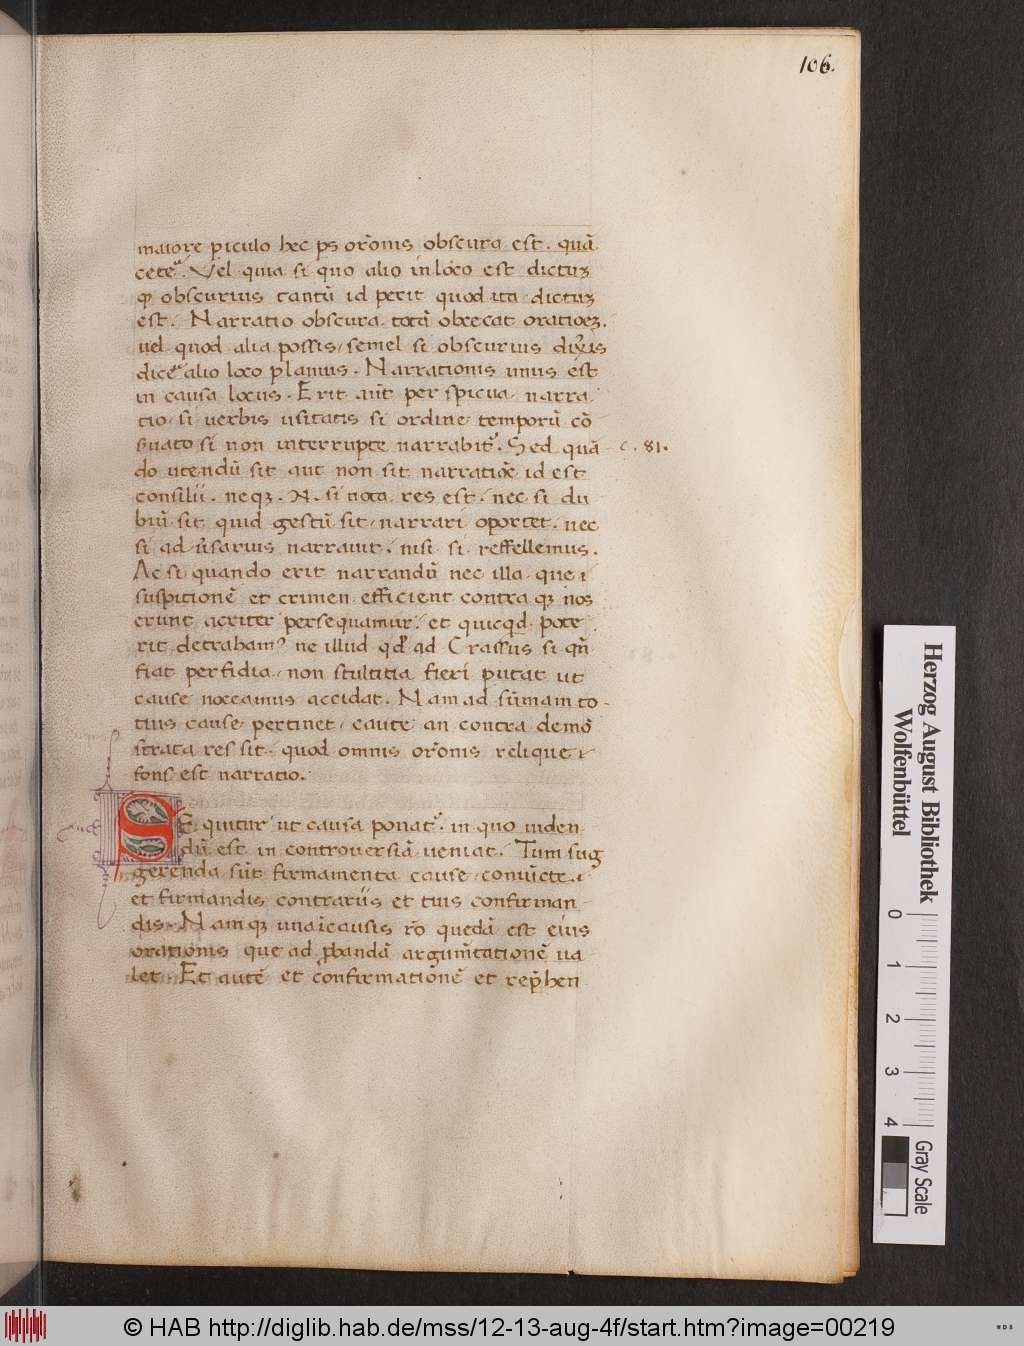 106.
maiore piculo hec ps orōnis obscura est. quā
cete. Vel quia si quo alio in loco est dictuꝫ
ꝙ obscurius tantū id perit quod ita dictuꝫ
est. Narratio obscura totā obcecat orationeꝫ.
uel quod alia possis semel si obscurius dixis
dice alio loco planius. Narrationis unus est
in causa locus. Erit aūt perspicua narra
tio si uerbis usitatis si ordine temporū cō
suato si non interrupte narrabit᷑. Sed quā
c. 81.
do utendū sit aut non sit narratiōe id est
consilii. neqꝫ. N. si nota res est. nec si du
biū sit quid gestū sit narrari oportet. nec
si aduersarius narrauit. nisi si reffellemus.
Ac si quando erit narrandū nec illa que i
suspitionē et crimen efficient contra qꝫ nos
erunt acriter persequamur. et quicqd pote
rit detraham᷒ ne illud qd ad Crassus si qn̄
fiat perfidia non stultitia fieri putat ut
cause noceamus accidat. Nam ad sūmam to
tius cause pertinet caute an contra demō
strata res sit. quod omnis orōnis relique
fons est narratio.
SEquitur ut causa ponat᷑. in quo uiden
dū est in controuersiā ueniat. Tum sug
gerenda sūt firmamenta cause
et firmandis contrariis et tuis confirman
dis. Namqꝫ una i causis rō quedā est eius
orationis que ad pbandā argumētationē ua
let. Et autē et confirmationē et rephen
Herzog August Bibliothek
Wolfenbüttel
0 1 2 3 4
Gray Scale
© HAB http://diglib.hab.de/mss/12-13-aug-4f/start.htm?image=00219